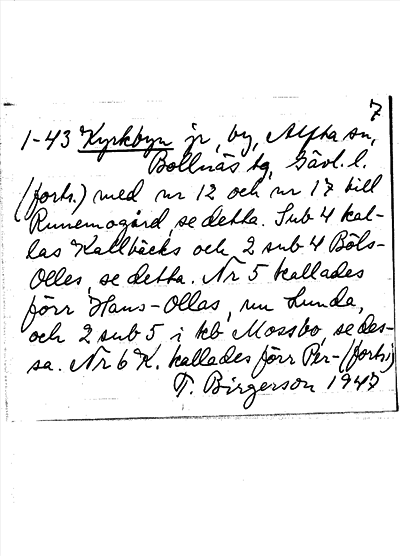 7
1-43 Kyrkbyn jr, by, Alfta sn,
Bollnäs tg, Gävl. l.
(forts.) med nr 12 och nr 17 till
Runemogård, se detta. Sub 4 kal-
las Kallbäcks och 2 sub 4 Böls-
Olles, se detta. Nr 5 kallades
förr Hans-Ollas, nu Lunda,
och 2 sub 5, i kb Mossbo, se des-
sa. Nr 6 K. kallades förr Per- (forts.)
T. Birgerson 1947